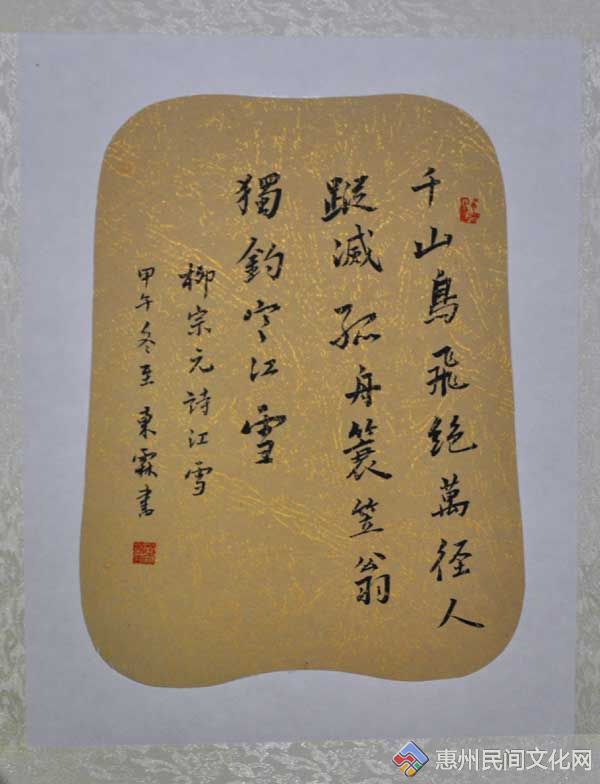 千山鳥飛絶萬径人
蹤滅孤舟簑笠翁
獨釣寒江雪
柳宗元詩江雪
甲午冬至東霖書
惠州民间文化网